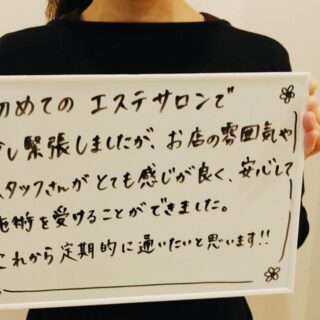 初めての エステサロンで
少し緊張しましたが、お店の雰囲気や
スタッフさんが とても感じが良く、安心して
施術を受けることができました。
これから定期的に通いたいと思います!!